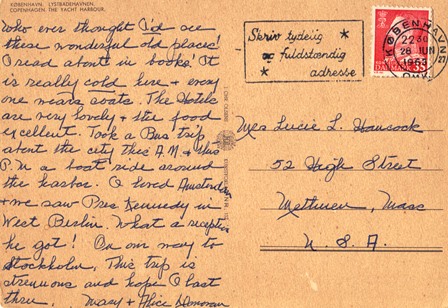 KØBENHAVN. LYSTBÅDEHAVNEN.
COPENHAGEN. THE YACHT HARBOUR.
Who ever thought I'd see
these wonderful old places!
I read about in books. It
is really cold here & every
one wears coats. The Hotels
are very lovely & the food
excellent. Took a Bus trip
about the city this A.M & this
P.M a boat ride around
the harbor. I loved Amsterdam
& we saw Pres Kennedy in
West Berlin. What a reception
he got! On our way to
Stockholm. This trip is
strenuous and hope I last
thru. Mary & Alice Donovan
Skriv tydelig
og fuldstændig
adresse
KØBENHAVN
2230
28 JUN
1963
DANMARK
Mrs Lucie L. Hancock
52 High Street
Methuen, Mass
U. S. A.